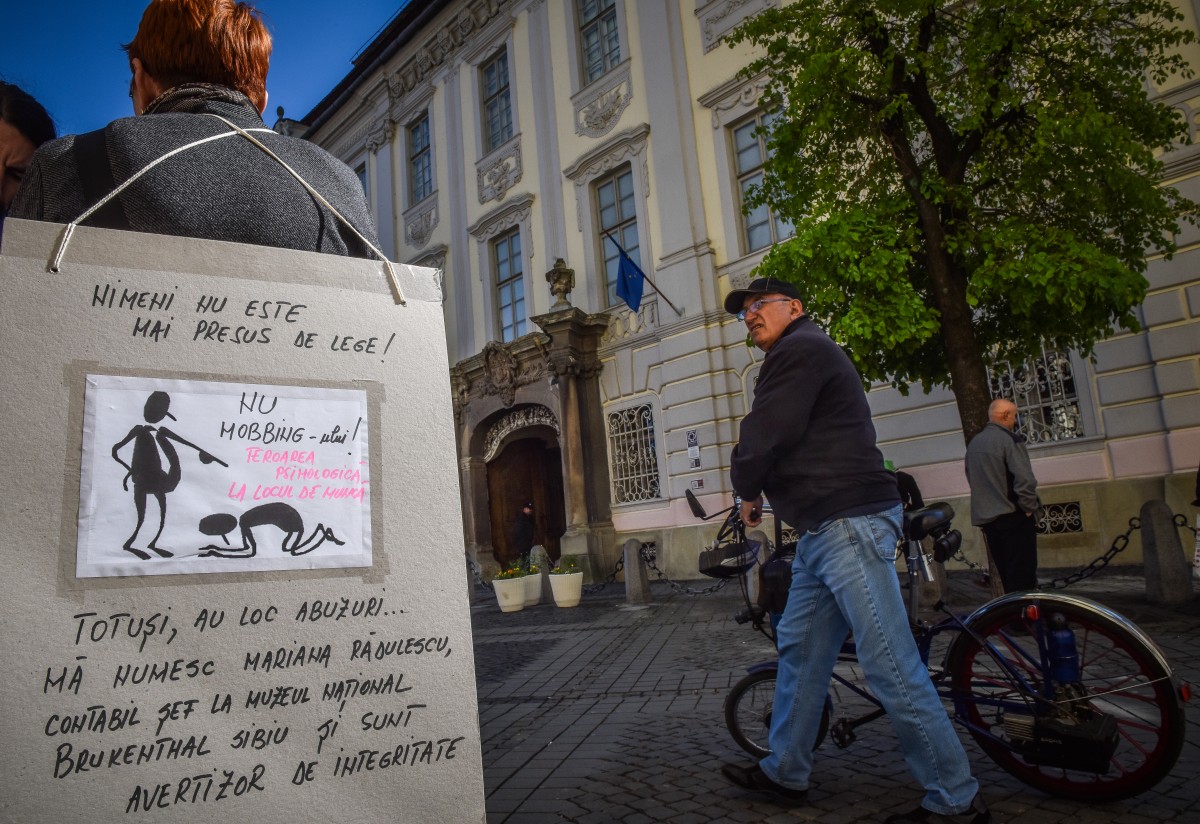 NIMENI NU ESTE
MAI PRESUS DE LEGE!
NU
MOBBING-ului!
TEROAREA
PSIHOLOGICĂ
LA LOCUL DE MUNCĂ
TOTUȘI, AU LOC ABUZURI...
MĂ NUMESC MARIANA RĂDULESCU,
CONTABIL ȘEF LA MUZEUL NAȚIONAL
BRUKENTHAL SIBIU ȘI SUNT
AVERTIZOR DE INTEGRITATE